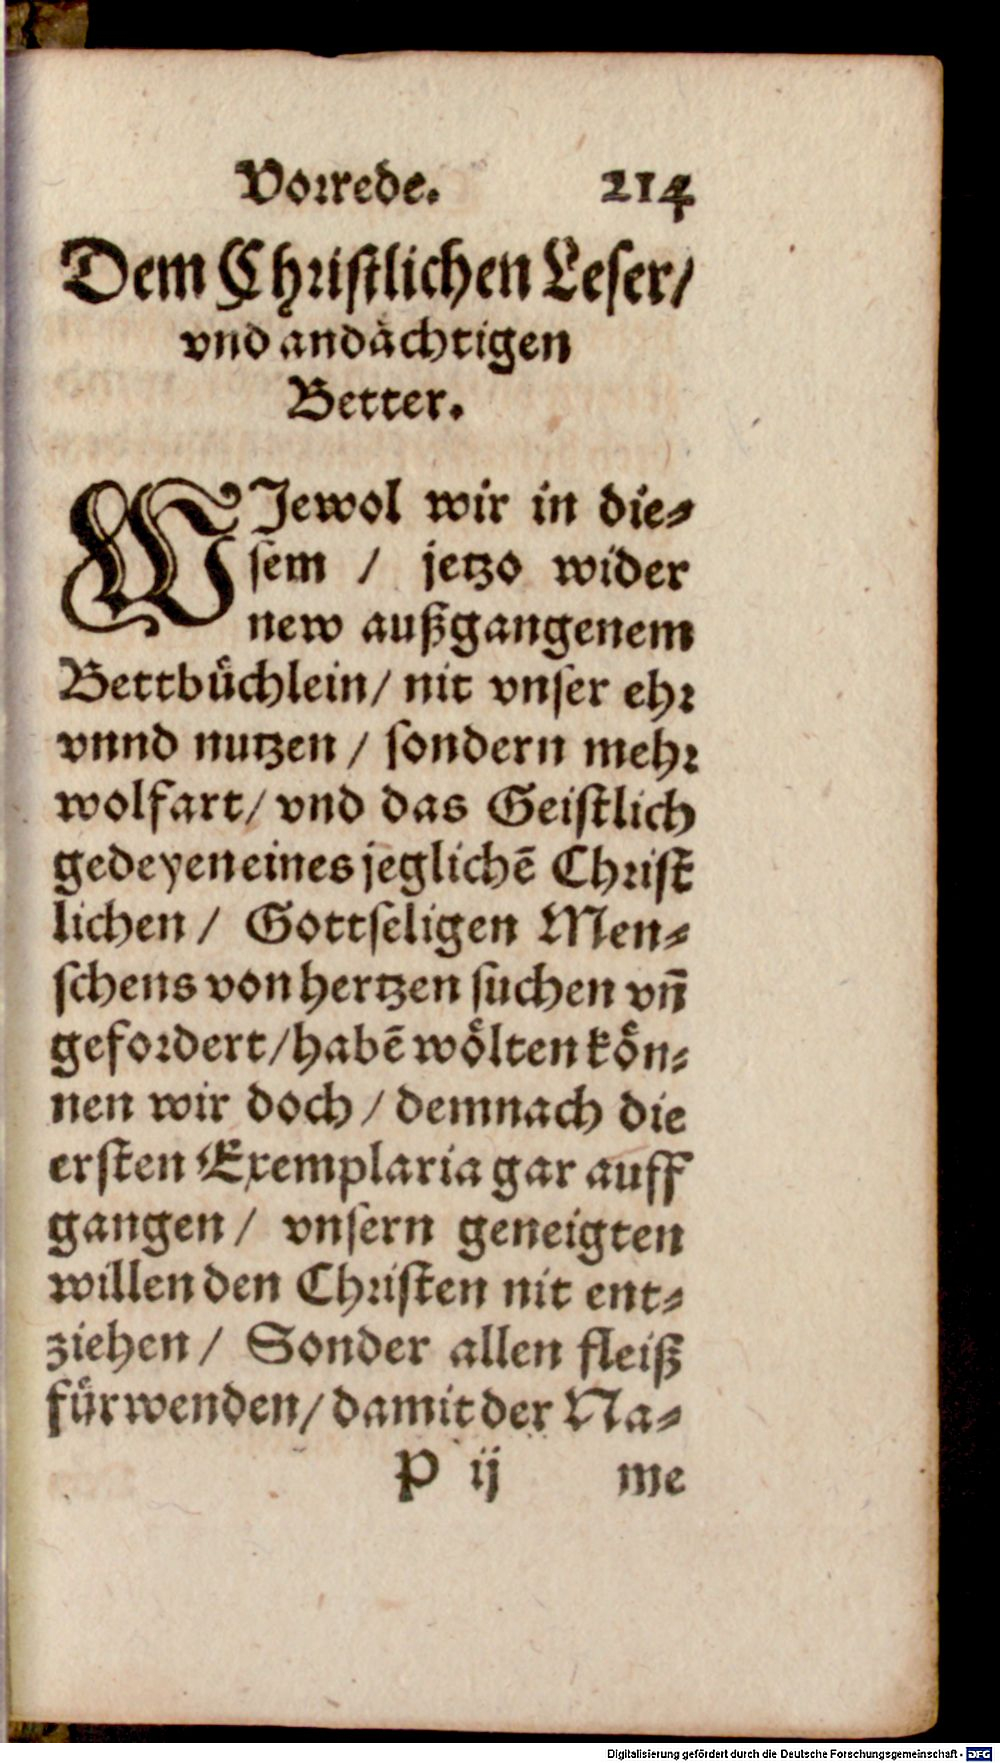 Vorrede. 214
Dem Christlichen Leser/
vnd andächtigen
Better.
WJewol wir in die⸗
sem / jetzo wider
new außgangenem
Bettbüchlein/ nit vnser ehr
vnnd nutzen / sondern mehr
wolfart/ vnd das Geistlich
gedeyen eines jeglichē Christ
lichen / Gottseligen Men⸗
schens von hertzen suchen vñ
gefordert/habē wölten kön⸗
nen wir doch / demnach die
ersten Exemplaria gar auff
gangen / vnsern geneigten
willen den Christen nit ent⸗
ziehen / Sonder allen fleiß
fürwenden/ damit der Na⸗
P ij me
Digitalisierung gefördert durch die Deutsche Forschungsgemeinschaft - DFG